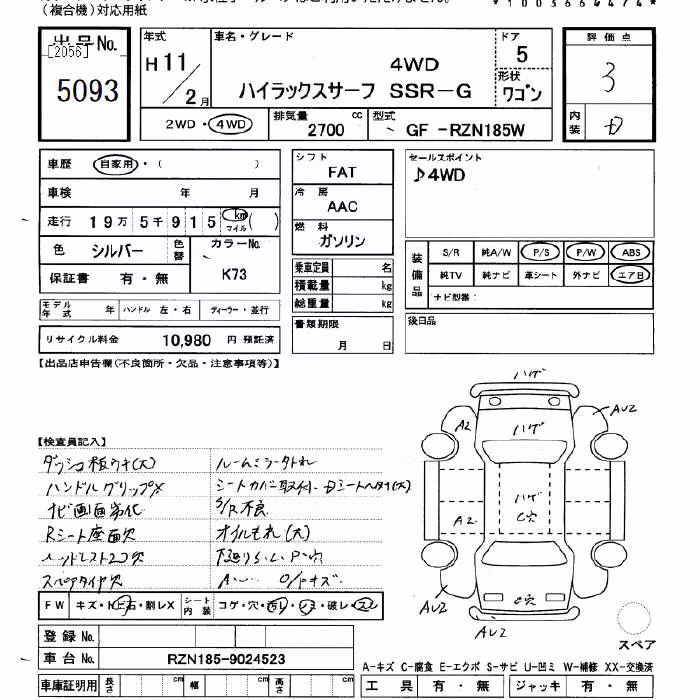 (複合機)対応用紙
*10036644 74*
出品No.
[2056]
5093
年式
H11/2月
車名・グレード
4WD
ハイラックスサーフ SSR-G
ドア
5
形状
ワゴン
2WD・4WD
排気量
2700
cc
型式
GF -RZN185W
評価点
3
内装
D
車歴
自家用・( )
車検
年 月
走行
19万5千915
km
マイル
( )
色
シルバー
色替
カラーNo.
K73
保証書
有・無
モデル年式
年
ハンドル 左・右
ディーラー・並行
リサイクル料金
10,980 円 預託済
シフト
FAT
冷房
AAC
燃料
ガソリン
乗車定員
名
積載量
kg
総重量
kg
書類期限
月 日
セールスポイント
♪4WD
装備品
S/R 純A/W P/S P/W ABS
純TV 純ナビ 革シート 外ナビ エアB
ナビ型番:
後日品
【出品店申告欄(不良箇所・欠品・注意事項等)】
【検査員記入】
ダッシュ板ワレ(大)
ハンドルグリップX
ナビ画面劣化
Rシート座面穴
ヘッドレスト2コ穴
スペアタイヤ欠
ルームミラー外れ
S/R不良
オイルもれ(大)
FW
キズ・トビ石・割レX
シート内装
コゲ・穴・汚レ・シミ・破レ・スレ
登録No.
車台No.
RZN185-9024523
車庫証明用
長さ
cm
幅
cm
高さ
cm
ハゲ
ハゲ
ハゲ
C穴
C穴
A2
A2
AU2
AU2
AU2
AU2
スペア
A-キズ C-腐食 E-エクボ S-サビ U-凹ミ W-補修 XX-交換済
工具 有・無
ジャッキ 有・無